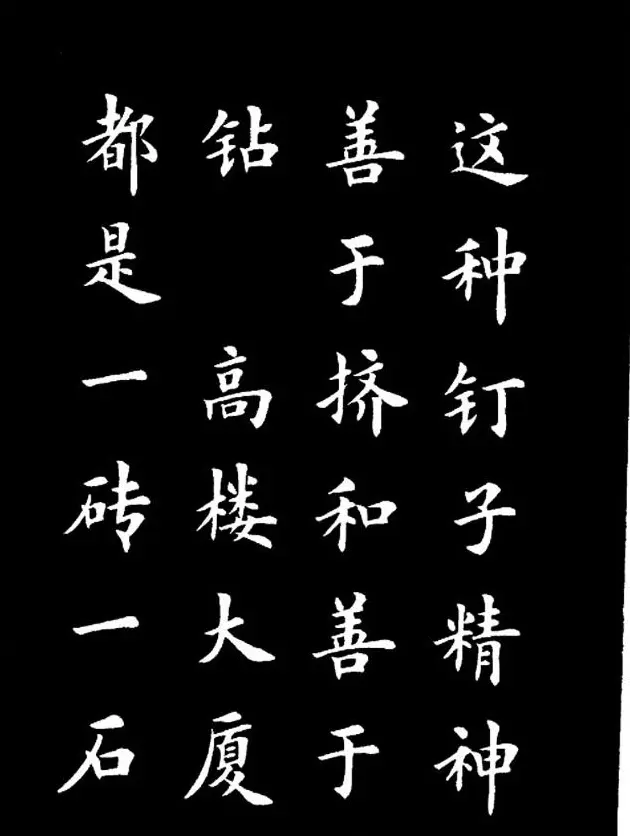 这种钉子精神
善于挤和善于
钻 高楼大厦
都是一砖一石